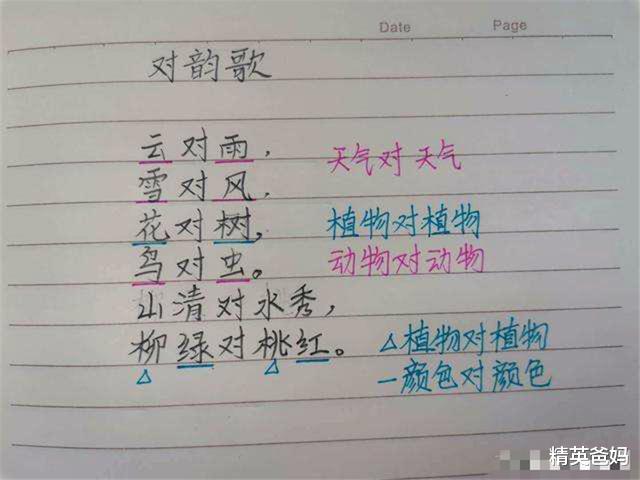 Date Page
对韵歌
云对雨，
天气对天气
雪对风，
花对树，
植物对植物
鸟对虫。
动物对动物
山清对水秀，
柳绿对桃红。
△植物对植物
—颜色对颜色
精英爸妈